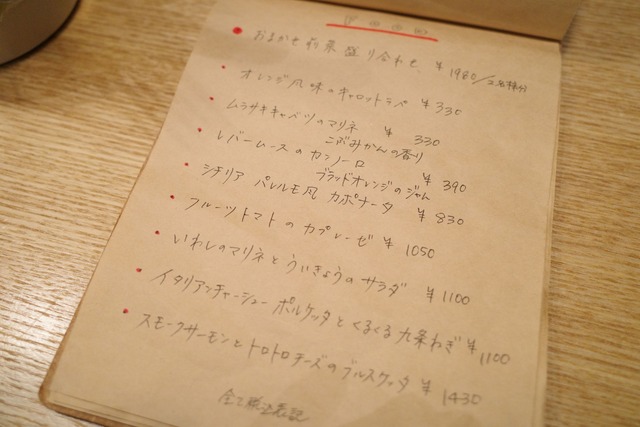 FOOD
おまかせ前菜盛り合わせ ¥1980/2名様分
オレンジ風味のキャロットラペ ¥330
ムラサキキャベツのマリネ ¥330
こぶみかんの香り
レバームースのカンノーロ ¥390
ブラッドオレンジのジャム
シチリア パレルモ風 カポナータ ¥830
フルーツトマトのカプレーゼ ¥1050
いわしのマリネとういきょうのサラダ ¥1100
イタリアンチャーシュー ポルケッタとくるくる九条ねぎ ¥1100
スモークサーモンとトロトロチーズのブルスケッタ ¥1430
全て税込表記